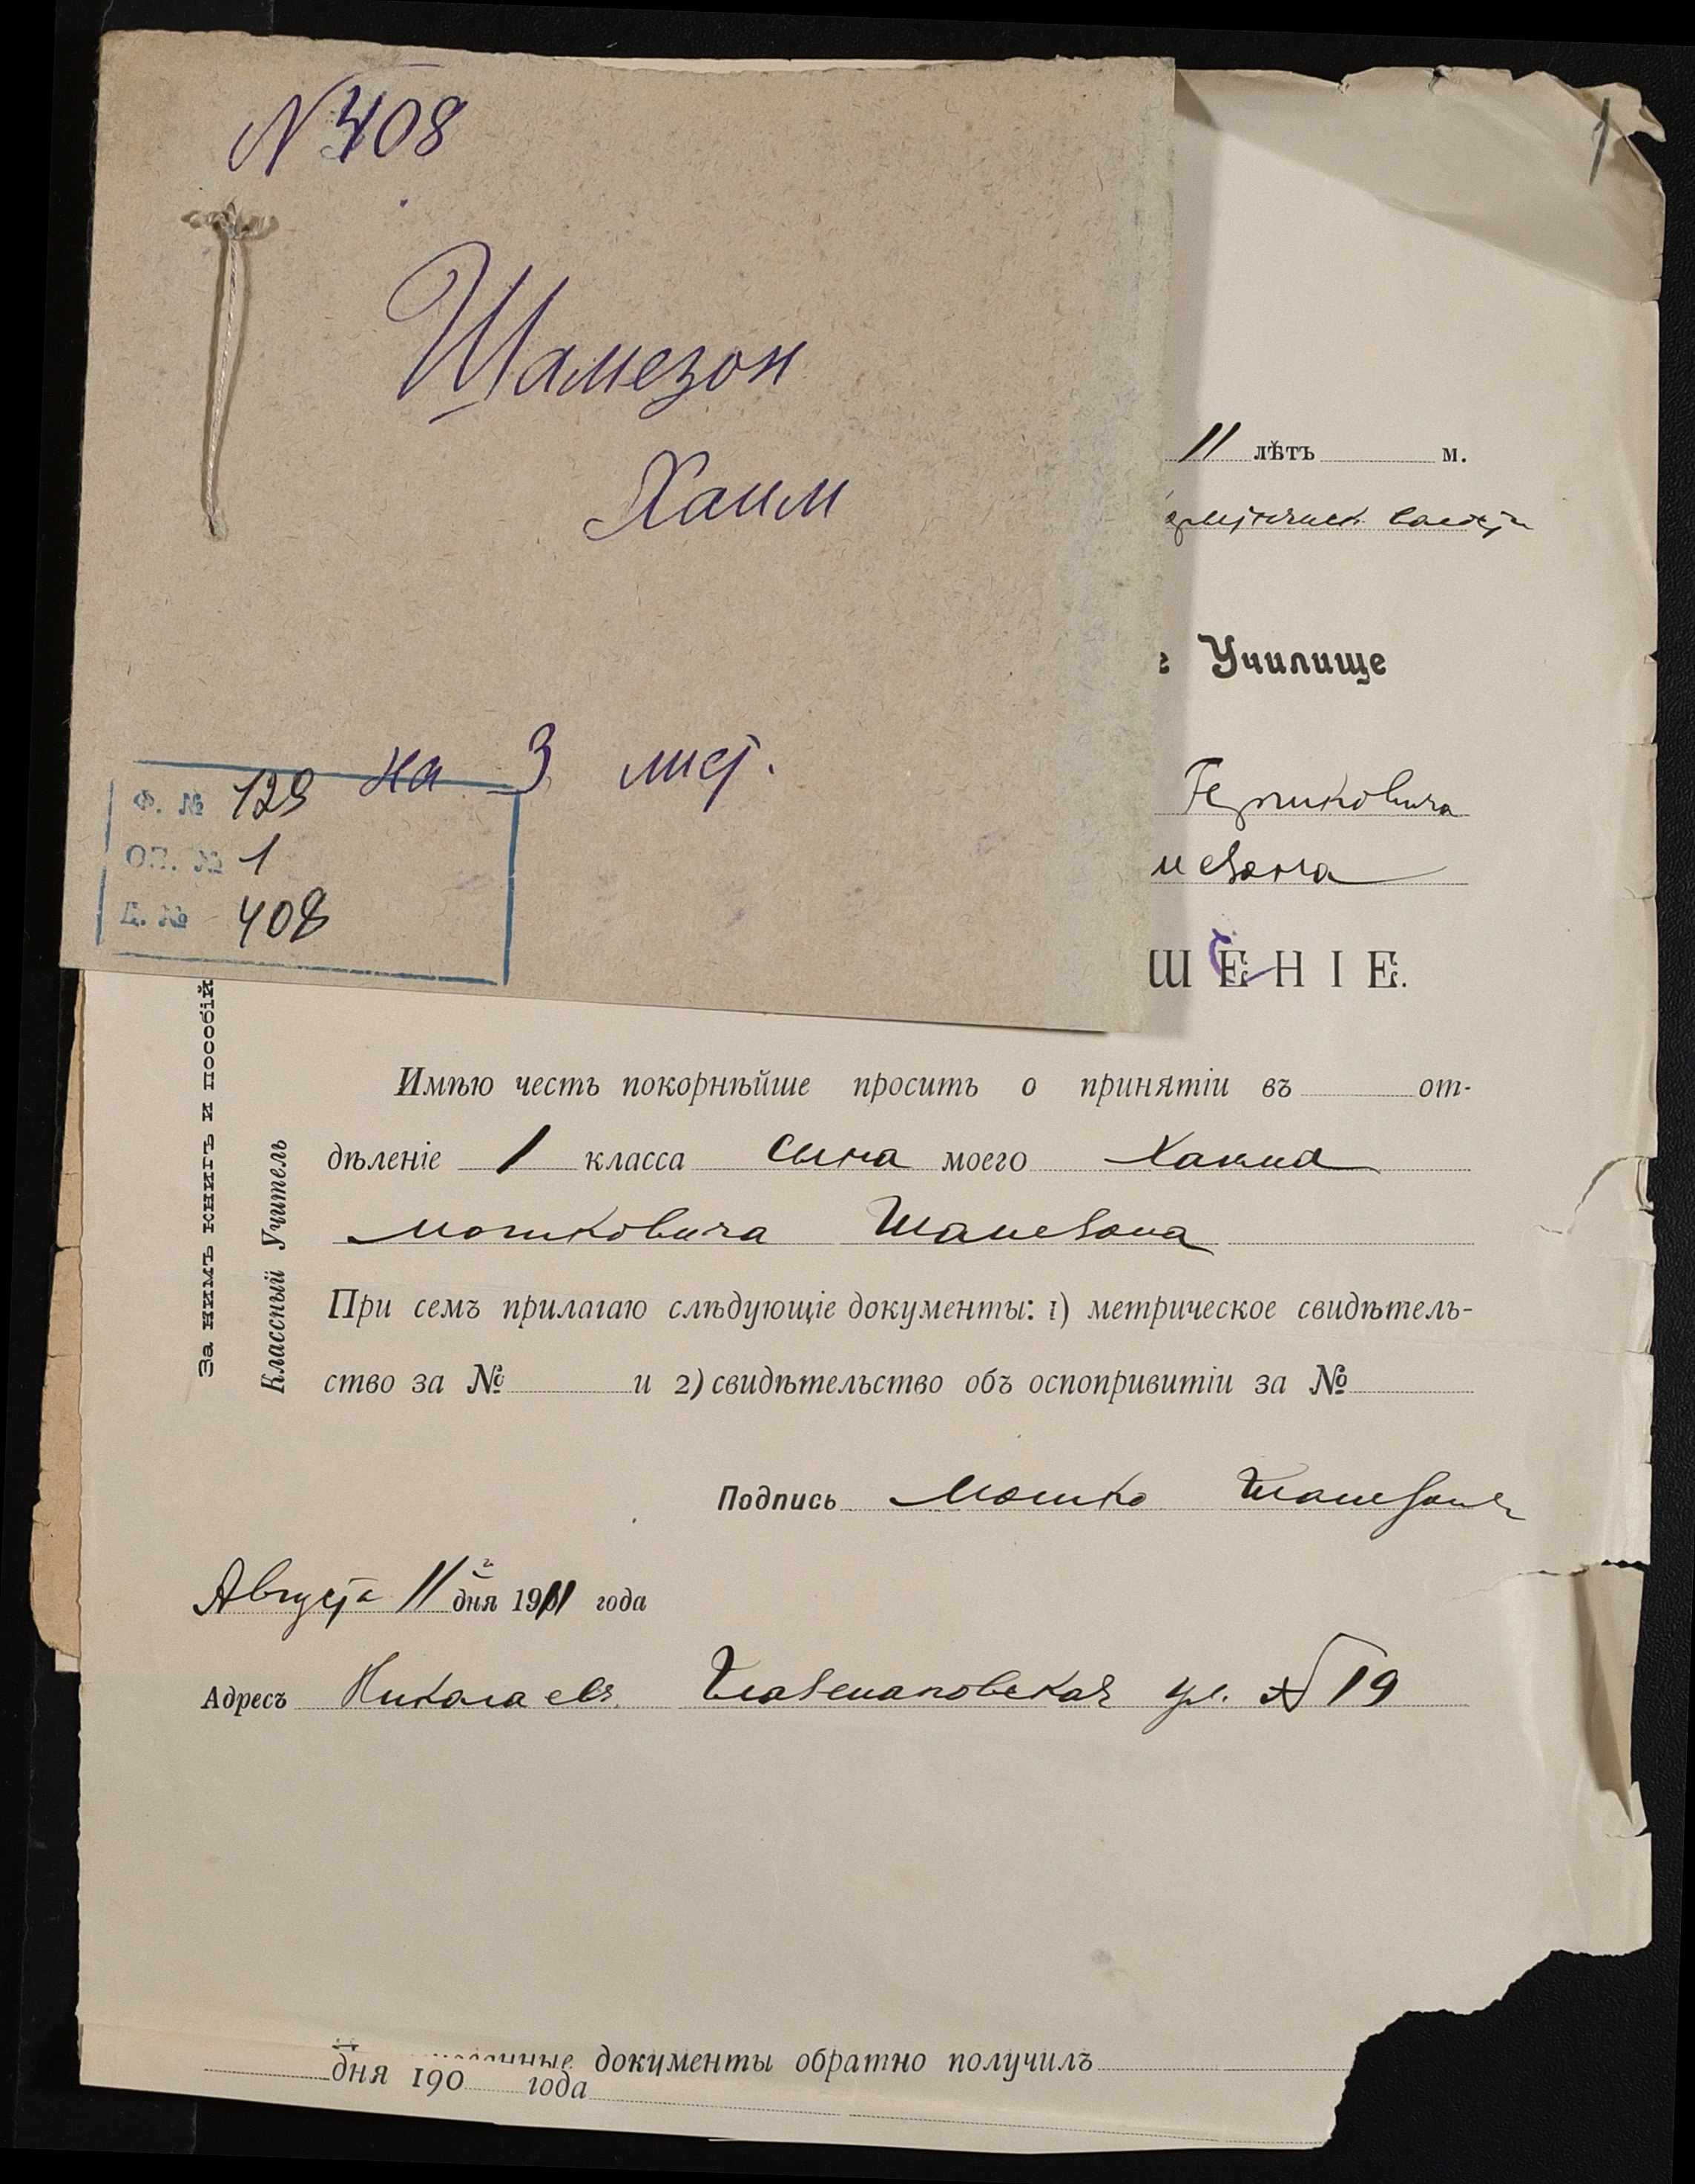 N 408
Шамезон
Хаим
на 3 лист.
Ф. № 129
ОП. № 1
Д. № 408
1
11 лѣтъ м.
Училище
Гершковича
мезона
ШЕНІЕ.
За нимъ книгъ и пособій
Классный Учитель
Имѣю честь покорнѣйше просить о принятіи въ от-
дѣленіе 1 класса сына моего Хаима
Мошковича Шамезона
При семъ прилагаю слѣдующіе документы: 1) метрическое свидѣтель-
ство за № и 2) свидѣтельство объ оспопривитіи за №
Подпись Мошко Шамезонъ
Августа 11 дня 1911 года
Адресъ Николаевъ ул. № 19
документы обратно получилъ
дня 190 года